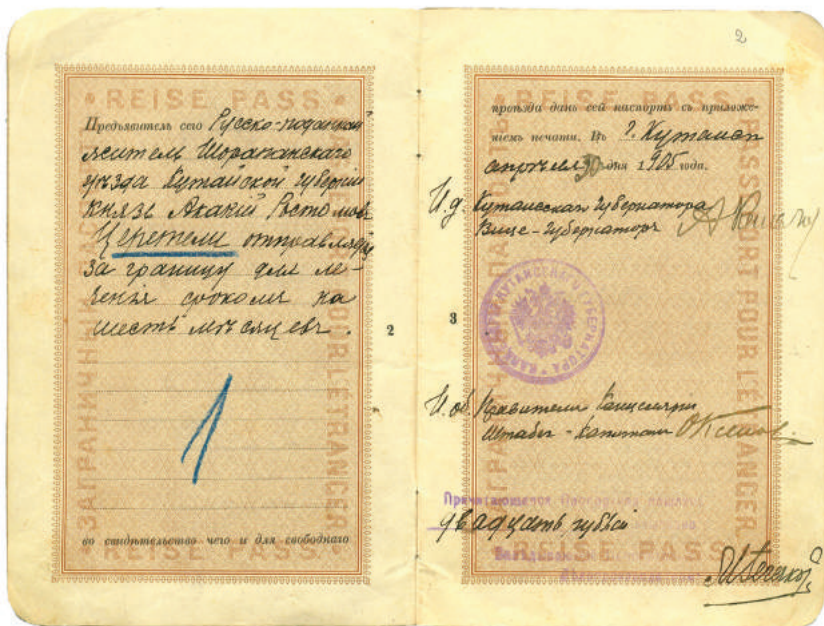 REISE PASS
ЗАГРАНИЧНЫЙ ПАСПОРТ
PASSEPORT POUR L'ÉTRANGER
Предъявитель сего Русско-подданный
житель Шорапанскаго
уѣзда Кутаисской губерніи
князь Акакій Ростомов
Церетели отправляется
за границу для ле-
ченія срокомъ на
шесть мѣсяцевъ.
1
во свидѣтельство чего и для свободнаго
REISE PASS
2
2
REISE PASS
ЗАГРАНИЧНЫЙ ПАСПОРТ
PASSEPORT POUR L'ÉTRANGER
проѣзда данъ сей паспортъ съ приложе-
ніемъ печати. Въ г. Кутаисѣ
апрѣля 30 дня 1905 года.
И. д. Кутаисскаго Губернатора
Вице-Губернаторъ
КУТАИССКАГО ГУБЕРНАТОРА
3
И. об. Правителя Канцеляріи
Штабсъ-Капитанъ
двадцать рублей
REISE PASS